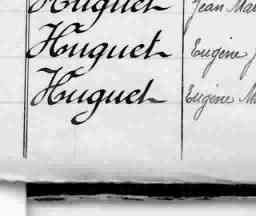 Huguet Jean Ma
Huguet Eugène J
Huguet Eugène M